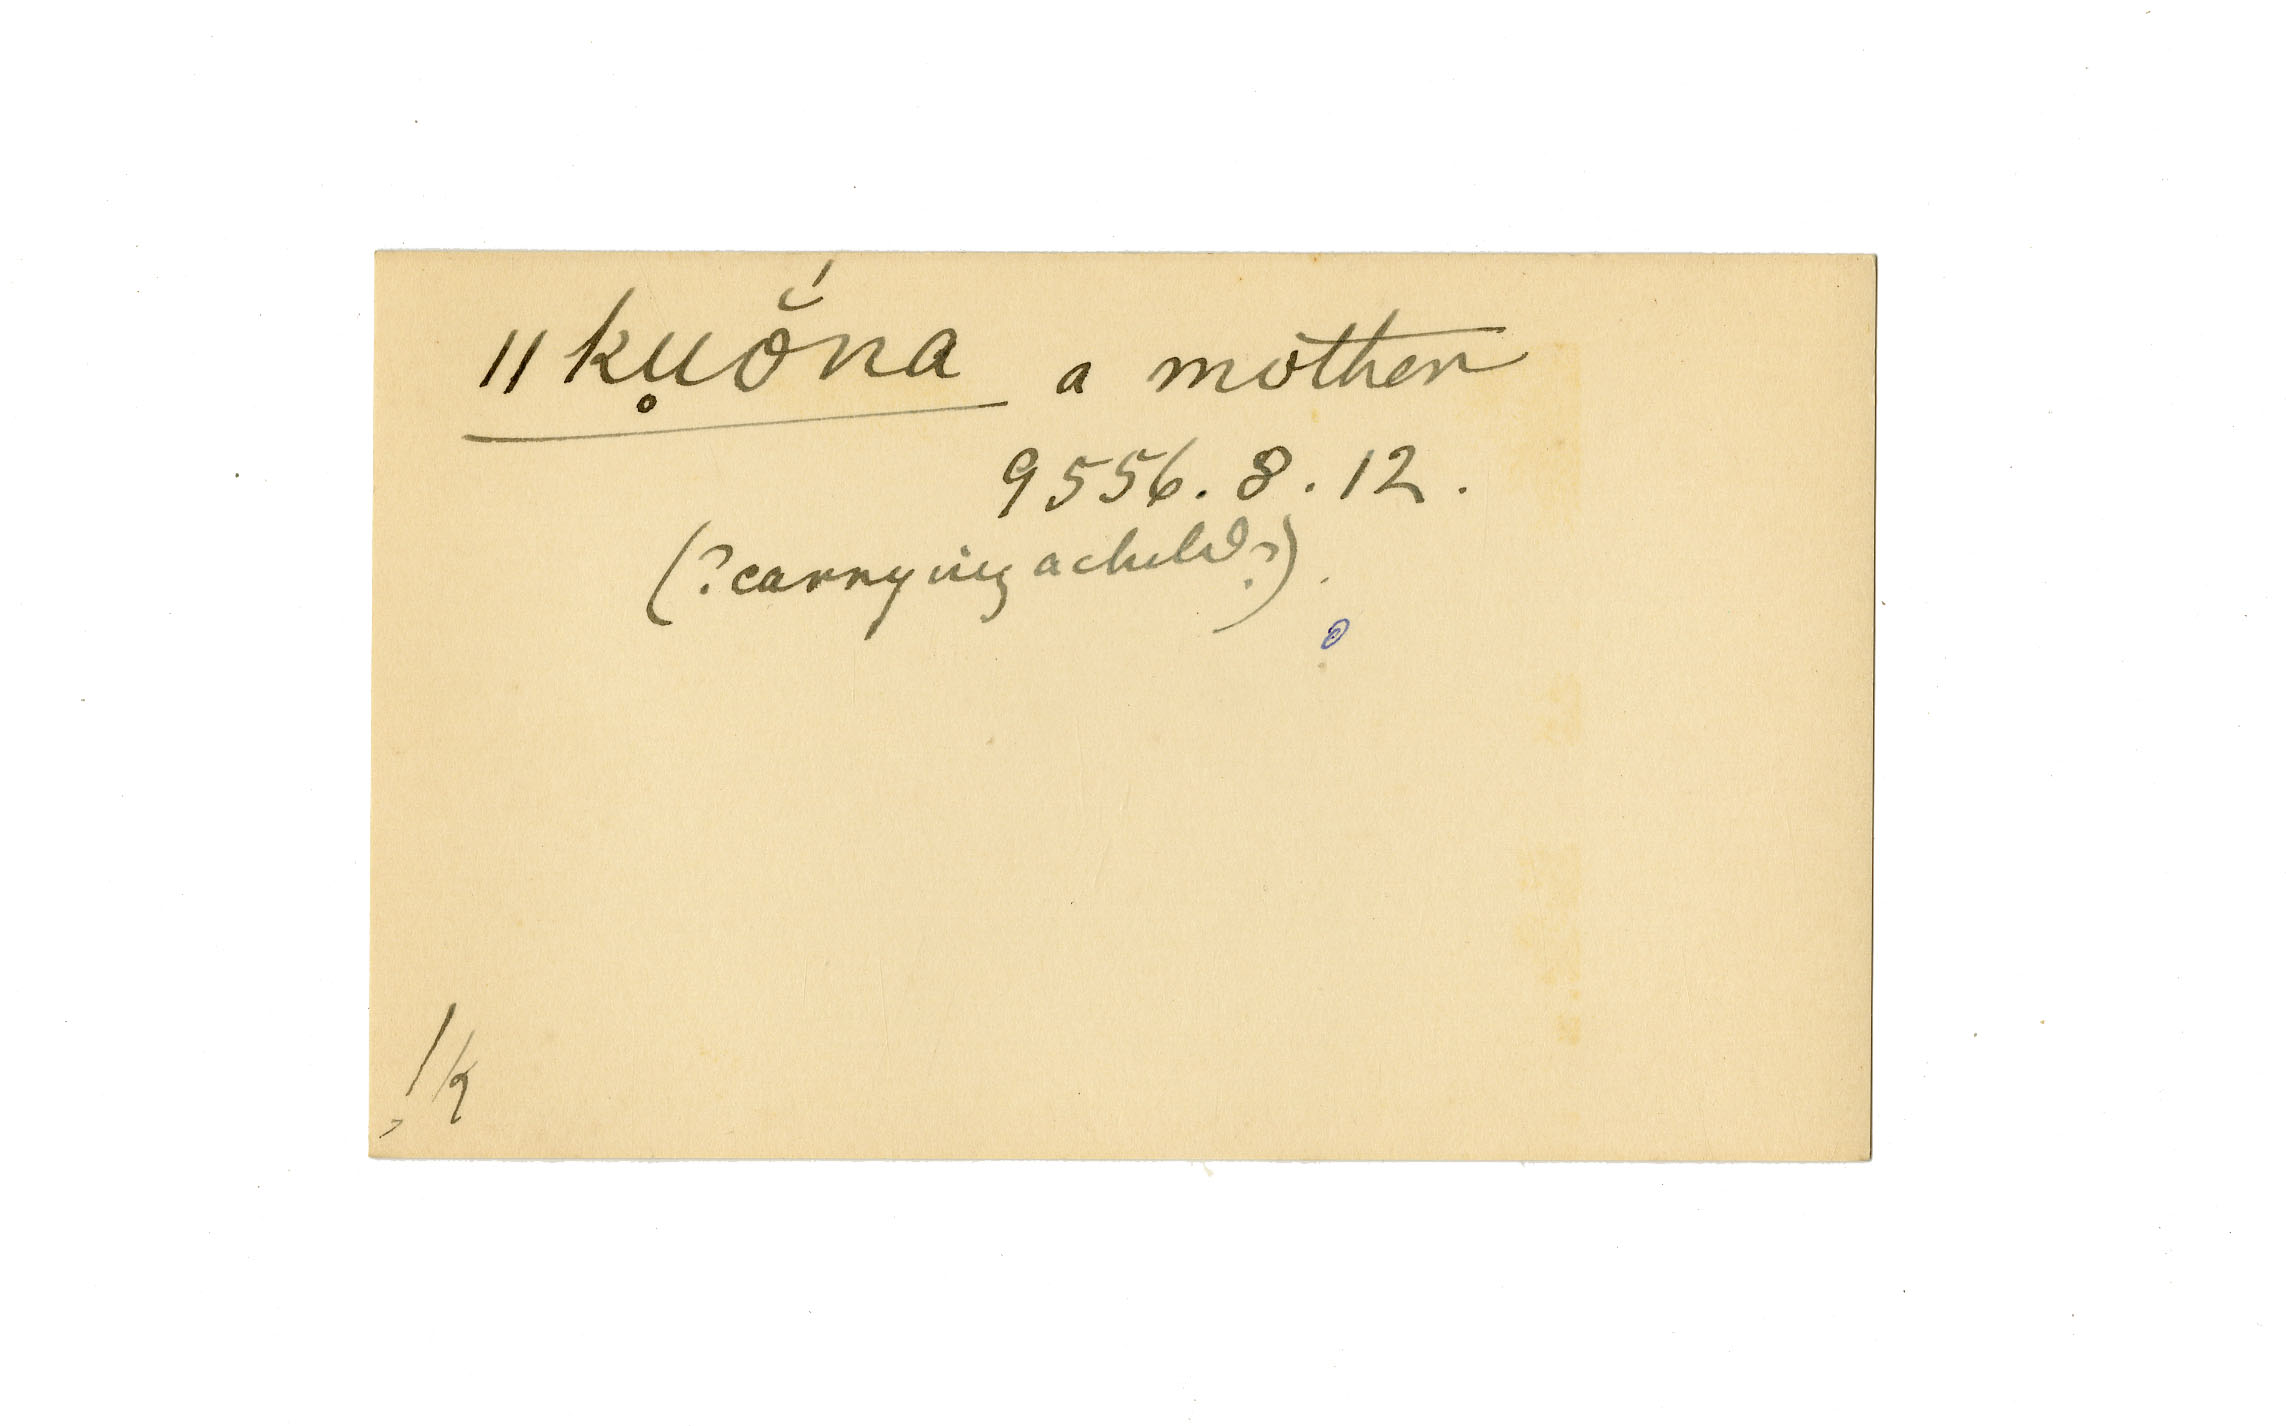 ǁku̥ŏ́na a mother
9556.8.12.
(?carrying a child?).
!k